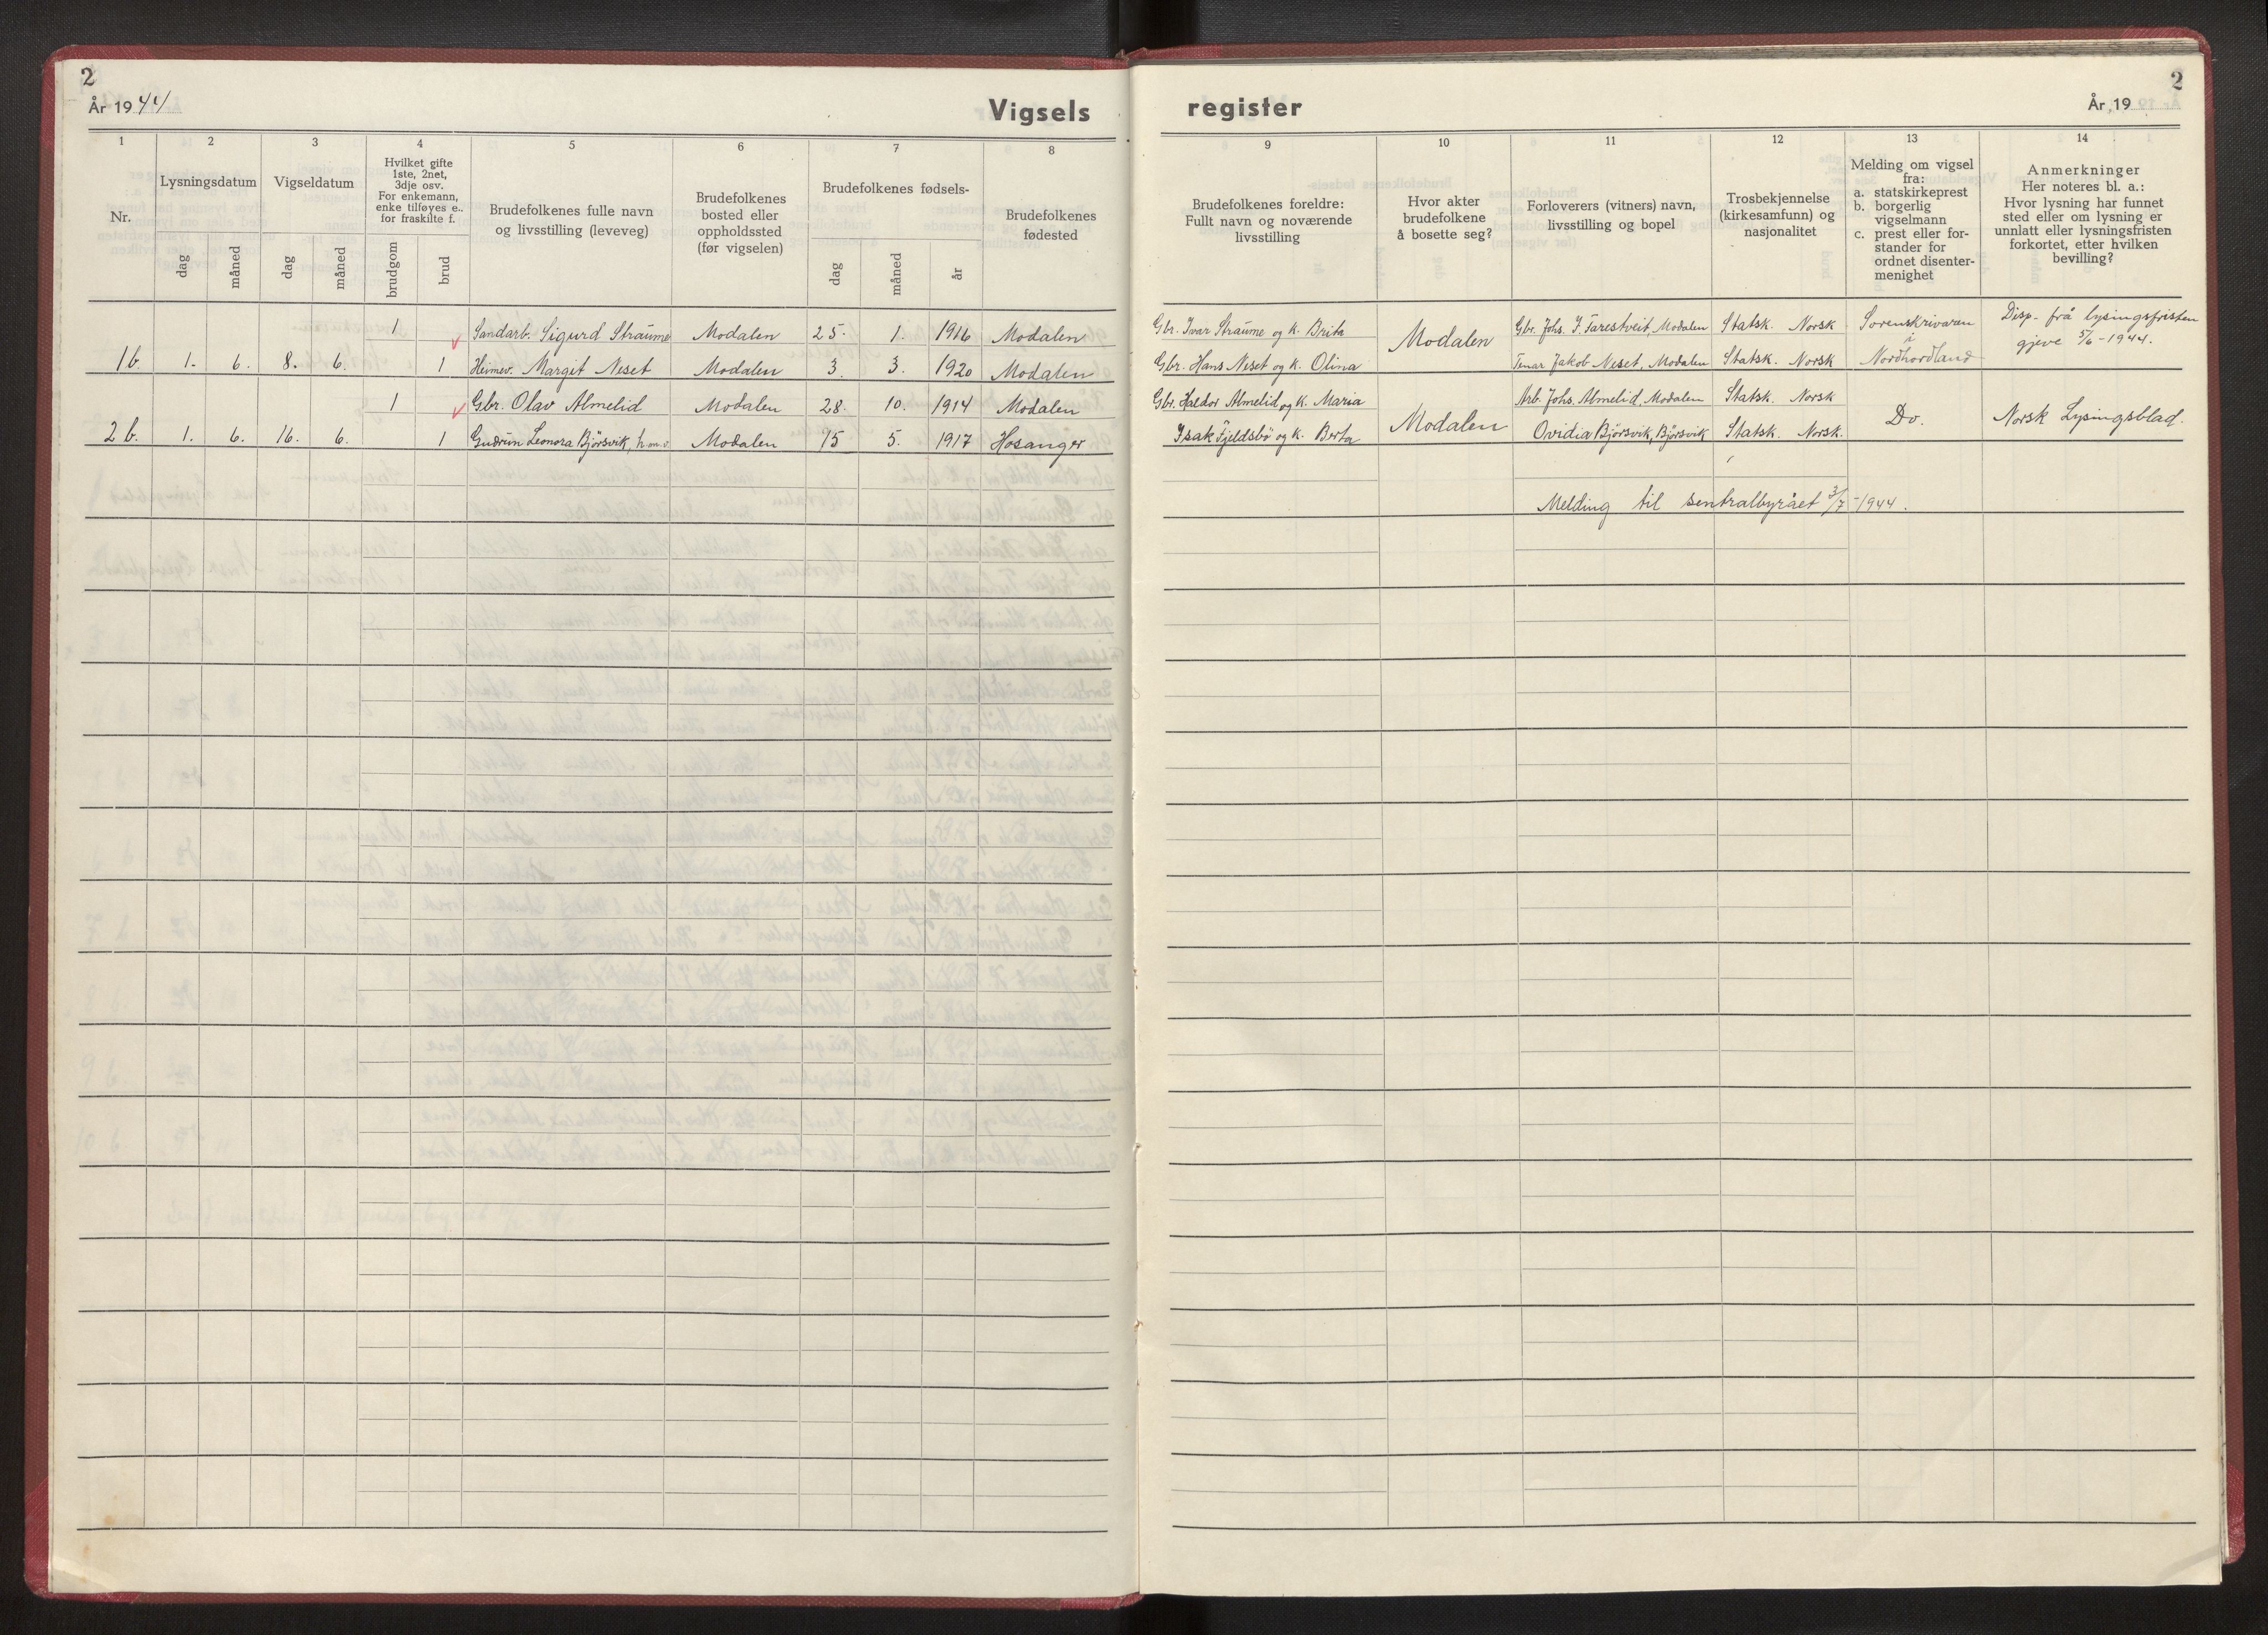 2
År 1944
Vigsels
1 2 3 4 5 6 7 8
Nr.
Lysningsdatum
dag måned
Vigseldatum
dag måned
Hvilket gifte
1ste, 2net,
3dje osv.
For enkemann,
enke tilføyes e..
for fraskilte f.
brudgom brud
Brudefolkenes fulle navn
og livsstilling (leveveg)
Brudefolkenes
bosted eller
oppholdssted
(før vigselen)
Brudefolkenes fødsels-
dag måned år
Brudefolkenes
fødested
1 Sandarb. Sigurd Straume Modalen 25. 1. 1916 Modalen
1 b. 1. 6. 8. 6. 1 Heimev. Margit Neset Modalen 3. 3. 1920 Modalen
1 Gbr. Olav Almelid Modalen 28. 10. 1914 Modalen
2 b. 1. 6. 16. 6. 1 Gudrun Leonora Bjørsvik, Modalen 15 5. 1917 Hosanger
register
2
År 19
9 10 11 12 13 14
Brudefolkenes foreldre:
Fullt navn og noværende
livsstilling
Hvor akter
brudefolkene
å bosette seg?
Forloverers (vitners) navn,
livsstilling og bopel
Trosbekjennelse
(kirkesamfunn) og
nasjonalitet
Melding om vigsel
fra:
a. statskirkeprest
b. borgerlig
vigselmann
c. prest eller for-
stander for
ordnet disenter-
menighet
Anmerkninger
Her noteres bl. a.:
Hvor lysning har funnet
sted eller om lysning er
unnlatt eller lysningsfristen
forkortet, etter hvilken
bevilling?
Gbr. Ivar Straume og k. Brita Modalen Gbr. Johs. J. Farestveit, Modalen Statsk. Norsk Sorenskrivaren i Disp. frå lysingsfristen
Gbr. Hans Neset og k. Olina Jakob Neset, Modalen Statsk. Norsk Nordhordland gjeve 5/6-1944.
Gbr. Haldor Almelid og k. Maria Modalen Arb. Johs. Almelid, Modalen Statsk. Norsk Do. Norsk Lysingsblad.
Isak Fjeldsbø og k. Berta Ovidia Bjørsvik, Bjørsvik Statsk. Norsk.
Melding til sentralbyrået 3/7-1944.